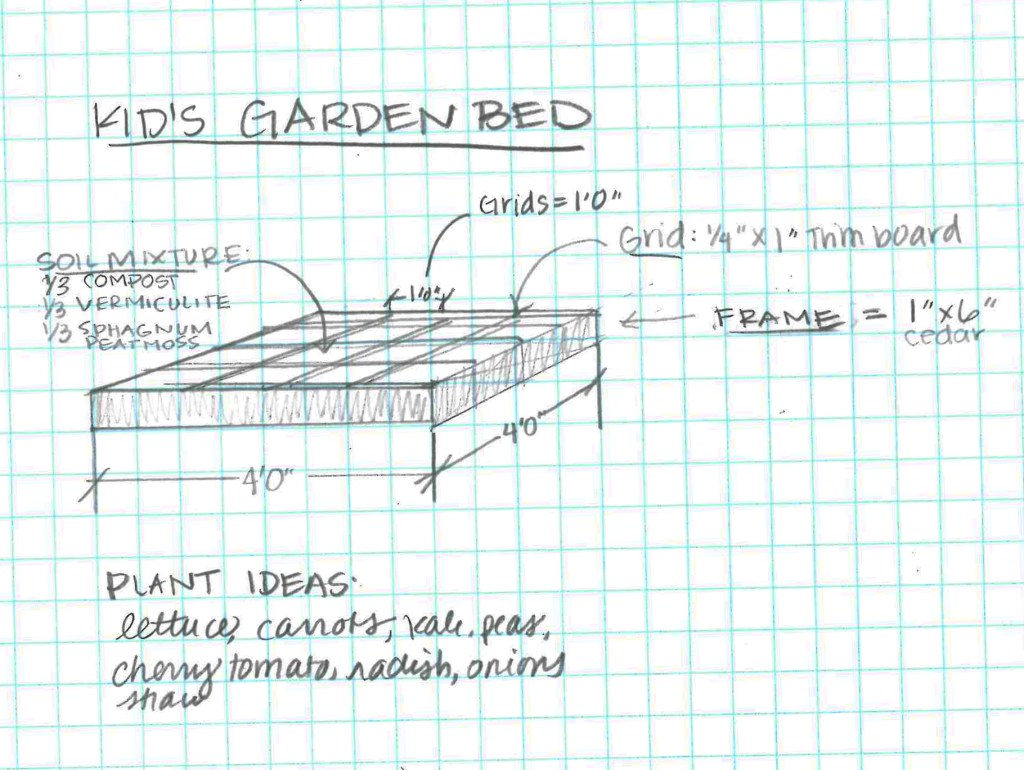 KID'S GARDEN BED
Grids = 1'0"
Grid: 1/4" X 1" Trim board
SOIL MIXTURE:
1/3 COMPOST
1/3 VERMICULITE
1/3 SPHAGNUM
PEATMOSS
1'0"
FRAME = 1"x6"
cedar
4'0"
4'0"
PLANT IDEAS:
lettuce, carrots, kale, peas,
cherry tomato, radish, onions